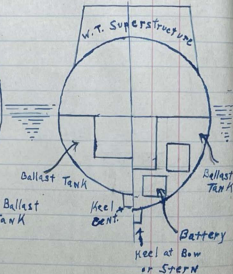 W.T. Superstructure
Ballast Tank
Ballast
Tank
Ballast
Tank
Keel
Cent.
Battery
Keel at Bow
or Stern